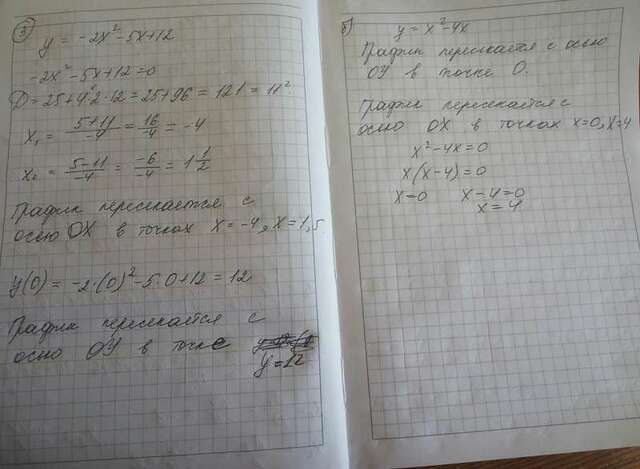 3
y = -2x² - 5x + 12
-2x² - 5x + 12 = 0
D = 25 + 4·2·12 = 25 + 96 = 121 = 11²
x₁ = (5+11)/(-4) = 16/(-4) = -4
x₂ = (5-11)/(-4) = (-6)/(-4) = 1 1/2
График пересекается с
осью OX в точках x = -4, x = 1,5.
y(0) = -2·(0)² - 5·0 + 12 = 12
График пересекается с
осью OY в точке
y = 12
б) y = x² - 4x
График пересекается с осью
OY в точке 0.
График пересекается с
осью OX в точках x=0, x=4
x² - 4x = 0
x(x-4) = 0
x=0 x-4=0
x=4